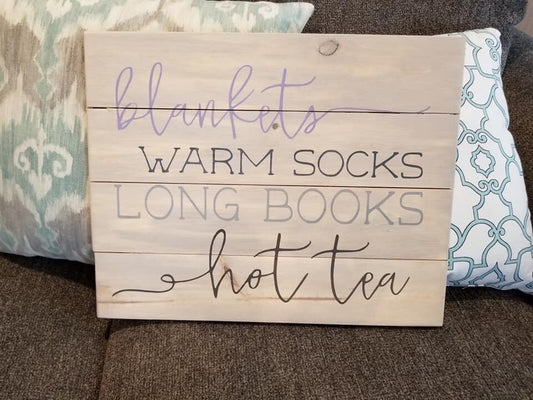 blankets
WARM SOCKS
LONG BOOKS
hot tea